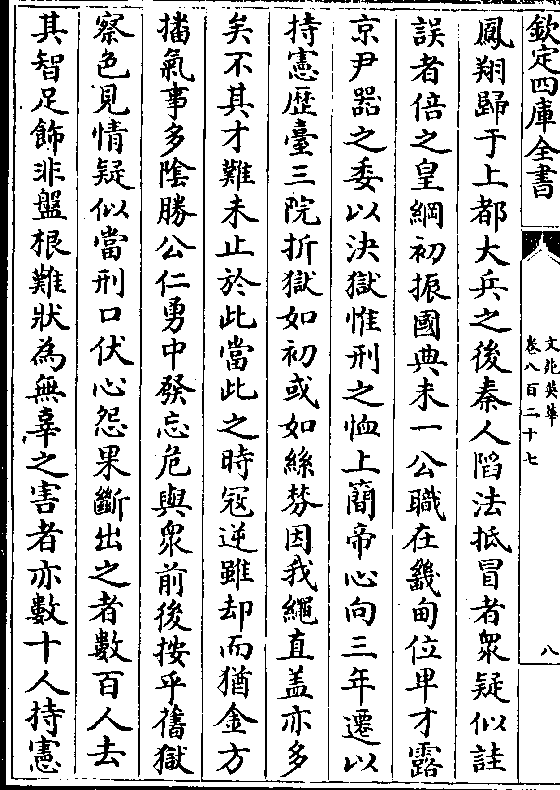 欽定四庫全書
文苑英華
卷八百二十七
八
鳳翔歸于上都大兵之後秦人䧟法抵冒者衆疑似詿
誤者倍之皇綱初振國典未一公職在畿甸位卑才露
京尹器之委以決獄惟刑之恤上簡帝心向三年遷以
持憲歴臺三院折獄如初或如絲棼因我繩直盖亦多
矣不其才難未止於此當此之時冦逆雖却而猶金方
播氣事多陰勝公仁勇中發忘危與衆前後按乎舊獄
察色見情疑似當刑口伏心怨果斷出之者數百人去
其智足飾非盤根難狀為無辜之害者亦數十人持憲